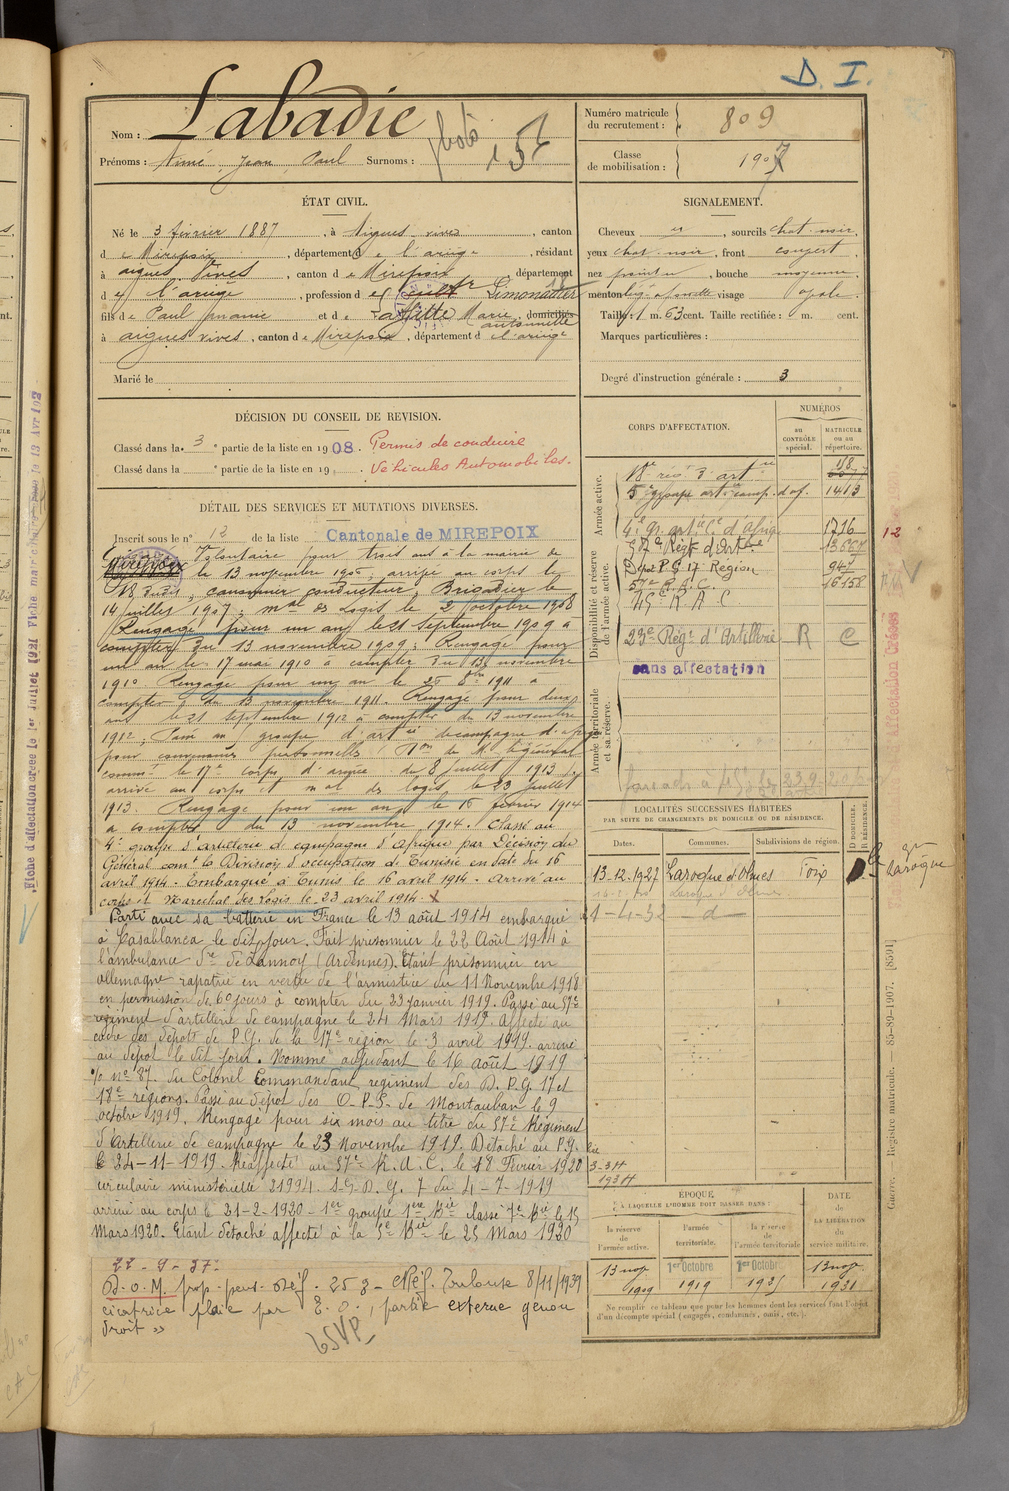 D. I.
Nom : Labadie
Prénoms : Aimé Jean Paul Surnoms :
photo
Numéro matricule du recrutement : 809
Classe de mobilisation : 1907
ÉTAT CIVIL.
Né le 3 février 1887, à Aigues vives, canton
de Mirepoix, département de l'ariège, résidant
à aigues vives, canton de Mirepoix, département
de l'ariège, profession de cult Limonadier
fils de Paul pranie et de Lafitte Marie antoinette domiciliés
à aigues vives, canton de Mirepoix, département de l'ariège
Marié le
SIGNALEMENT.
Cheveux sourcils chat. noir,
yeux chat. noir, front couvert,
nez pointu, bouche moyenne,
menton visage ovale.
Taille : 1 m. 63 cent. Taille rectifiée : m. cent.
Marques particulières :
Degré d'instruction générale : 3
DÉCISION DU CONSEIL DE REVISION.
Classé dans la 3e partie de la liste en 1908. Permis de conduire
Classé dans la e partie de la liste en 19 . Véhicules Automobiles.
DÉTAIL DES SERVICES ET MUTATIONS DIVERSES.
Inscrit sous le n° 12 de la liste Cantonale de MIREPOIX
Engagé Volontaire pour trois ans à la mairie de
Mirepoix le 13 novembre 1906, arrivé au corps le
18 dudit, canonnier conducteur, Brigadier le
14 juillet 1907, mal des Logis le 2 octobre 1908
Rengagé pour un an le 21 septembre 1909 à
compter du 13 novembre 1909; Rengagé pour
un an le 17 mai 1910 à compter du 13 novembre
1910 Rengagé pour un an le 26 8bre 1911 à
compter du 13 novembre 1911. Rengagé pour deux
ans le 21 septembre 1912 à compter du 13 novembre
1912; Passé au groupe d'artie de campagne d'afrique
pour convenances personnelles Don de M. le général
commt le 17e corps d'armée du 8 juillet 1913
arrivé au corps et mal des logis le 23 juillet
1913. Rengagé pour un an le 16 février 1914
à compter du 13 novembre 1914. Classé au
4e groupe d'artillerie de campagne d'Afrique par Décision du
Général comt la Division d'occupation de Tunisie en date du 16
avril 1914. Embarqué à Tunis le 16 avril 1914. Arrivé au
corps et Marechal des Logis le 23 avril 1914. X
Parti avec sa batterie en France le 13 août 1914 embarqué
à Casablanca le dit jour. Fait prisonnier le 22 Août 1914 à
l'ambulance de de Lannoy (Ardennes). Etait prisonnier en
allemagne rapatrié en vertu de l'armistice du 11 Novembre 1918
en permission de 60 jours à compter du 23 Janvier 1919. Passé au 57e
régiment d'artillerie de campagne le 24 Mars 1919. Affecté au
cadre des dépôts de P.G. de la 17e région le 3 avril 1919. arrivé
au dépôt le dit jour. Nommé adjudant le 16 août 1919
% n° 87. du Colonel Commandant régiment des D. P.G. 17 et
18e régions. Passé au dépôt des O.P.G. de Montauban le 9
octobre 1919. Rengagé pour six mois au titre du 57e Régiment
d'Artillerie de campagne le 23 Novembre 1919. Détaché au P.G. du
le 24-11-1919. Réaffecté au 57e R.A.C. le 18 Février 1920
circulaire ministérielle 21994. S.G.D.G. 7 du 4-7-1919
arrivé au corps le 21-2-1920 - 1er groupe 1ère Bie classé 7e Bie le 15
Mars 1920. Etant détaché affecté à la 5e Bie le 25 Mars 1920
27-9-37:
D.O.M. prop. pent. Déf. 253 - Toulouse 8/11/1939
cicatrice plaie par E.O., partie externe genou
droit »
TSVP
CORPS D'AFFECTATION.
NUMÉROS
au CONTRÔLE spécial.
MATRICULE ou au répertoire.
Armée active.
18e rég d'artie
5e groupe artie camp. d'af. 1413
Disponibilité et réserve de l'armée active.
4e gr. artie Ce d'Afrique 1716
57e Régt d'Artie 13567
Dépôt P.G 17 Region 947
57e R.A.C. 16158
45e R A C
23e Régt d'Artillerie R C
sans affectation
Armée territoriale et sa réserve.
LOCALITÉS SUCCESSIVES HABITÉES
PAR SUITE DE CHANGEMENTS DU DOMICILE OU DE RÉSIDENCE.
Dates. Communes. Subdivisions de région. D DOMICILE. R RÉSIDENCE.
13.12.1927 Laroque d'Olmes Foix
Laroque
1-4-32 d
ÉPOQUE
À LAQUELLE L'HOMME DOIT PASSER DANS :
la réserve de l'armée active. l'armée territoriale. la réserve de l'armée territoriale
DATE DE LA LIBÉRATION du service militaire.
13 nov 1909
1er Octobre 1919
1er Octobre 1925
13 nov. 1931
Ne remplir ce tableau que pour les hommes dont les services font l'objet
d'un décompte spécial (engagés, condamnés, omis, etc.).
Guerre. Registre matricule. — 85-89-1907. [8591]
Fiche d'affectation créée le 1er Juillet 1921